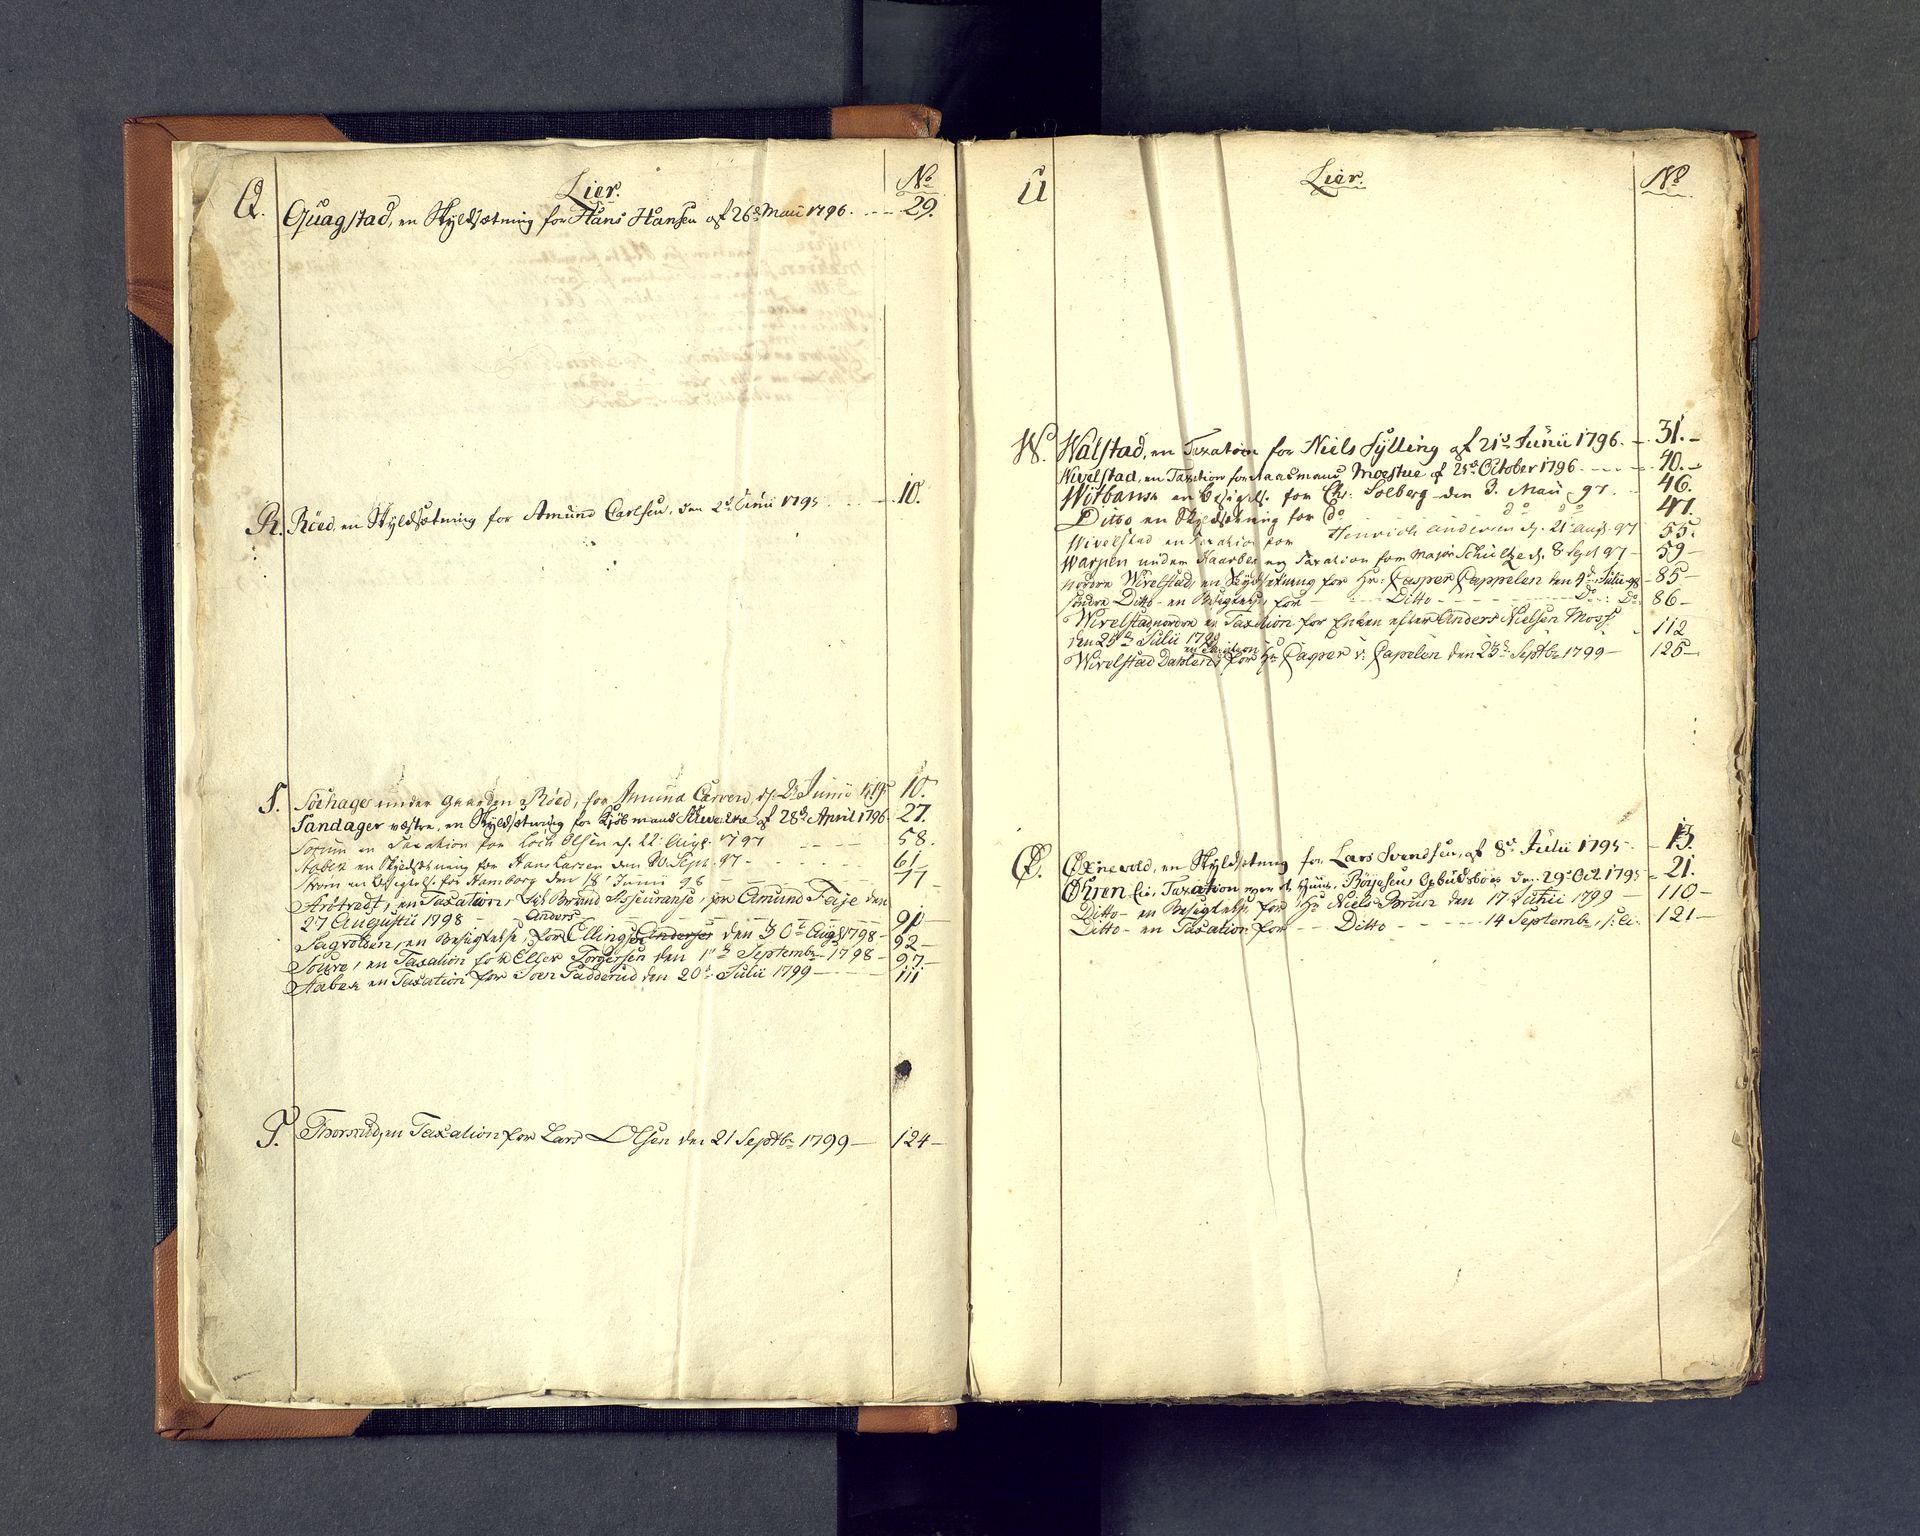 Lier. No
Q. Quagstad, en Skyldsætning for Hans Hansen af 26d Maii 1796. 29.
R. Röed, en Skyldsætning for Amund Carlsen, den 2d Junii 1795 10.
S. under Gaarden Röed, for Amund d. 2 Junii 10.
Sandager væstre, en Skyldsætning for Kjöbmand af 28d April 1796 27.
en Taxation for Olsen d. 22 Aug. 1797 58.
Staber en Skyldsætning for Hans Larsen den Sept. 97 61
en Besigtelse for Hamborg den 18 Junii 98 77
en Taxation, til Brand for Amund Feje den
27 Augustii 1798 90
Anders
en Besigtelse, for Ellings Anderses den 30t Aug 1798 92
en Taxation for Eller Torgersen den Septembr 1798 97
Staber en Taxation for Soer den 20d Julii 1799 111
T. Thorsrud, en Taxation for Lars Olsen den 21 Septbr 1799 124
U Lier. No
W. Walstad, en Taxation for Niels Sylling af 21d Junii 1796. 31.
Wivelstad, en Taxation for Moestue af 25d October 1796 40.
Witbansk en Besigtelse for Chr: Solberg den 3. Maii 97. 46.
Ditto en Skyldsætning for do do do 47.
Wivelstad en Taxation for Henrich Andersen d. 21 Aug. 97 55.
Warpen under en Taxation for Major Schultze d. 8 Sept 97 59
nordre Wivelstad, en Skyldsetning for Hr: Casper Cappelen den 9d Julii 98 85
söndre Ditto en Besigtelse for Ditto Do: Do: 86
Wivelstad nordre en Taxation for Enken efter Anders Nielsen Moss
den 25d Julii 1799 112
en Taxation
Wivelstad Dahlen for Hr Casper v: Capelen den 23d Septbr 1799 125
Ø. Øxnevold, en Skyldsetning for Lars Svendsen, af 8d Julii 1795. 13.
Øhren Taxation over Böyesens Opbudsboe den 29d Oct 1795 21.
Ditto en Besigtelse for Hr Niels Brun den 17 Julii 1799 110
Ditto en Taxation for Ditto 14 Septembr. 121